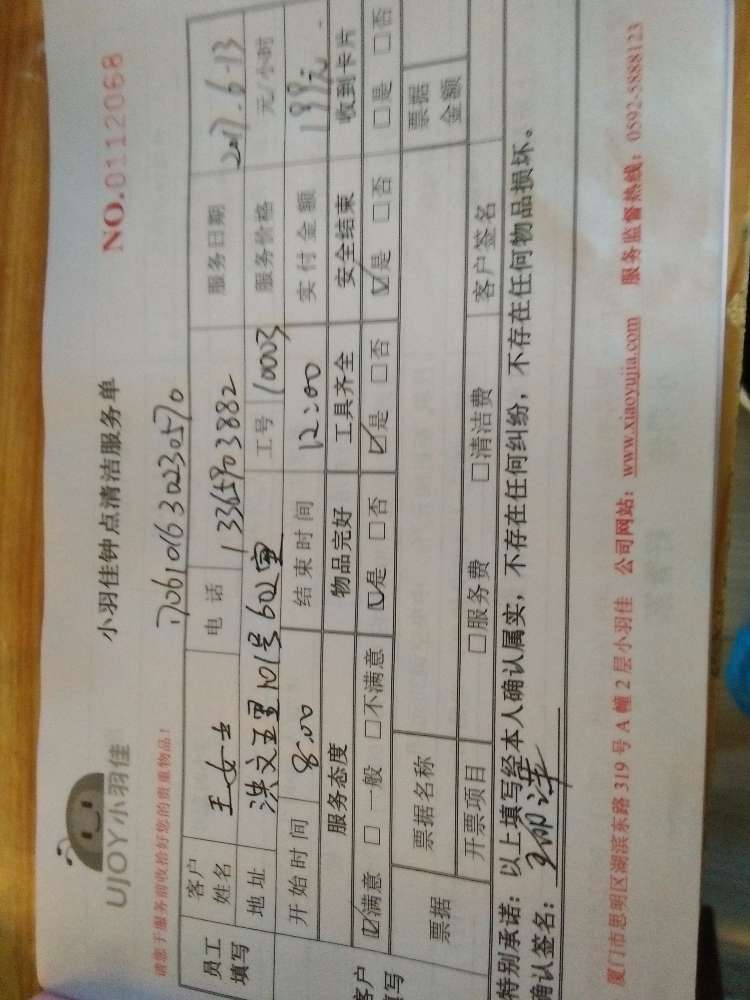 UJOY小羽佳
小羽佳钟点清洁服务单
NO.0112068
请您于服务前收拾好您的贵重物品！
1706101630230570
员工填写 客户姓名 王女士 电话 13365903882 服务日期 2017.6-13
地址 洪文五里101号602室 工号 10003 服务价格 元/小时
开始时间 8:00 结束时间 12:00 实付金额 199元
客户填写 服务态度 物品完好 工具齐全 安全结束 收到卡片
☑满意 □一般 □不满意 ☑是 □否 ☑是 □否 ☑是 □否 □是 □否
票据 票据名称 票据金额
开票项目 □服务费 □清洁费 客户签名
特别承诺：以上填写经本人确认属实，不存在任何纠纷，不存在任何物品损坏。
确认签名：
厦门市思明区湖滨东路 319 号 A 幢 2 层小羽佳 公司网站：www.xiaoyujia.com 服务监督热线：0592-5888123